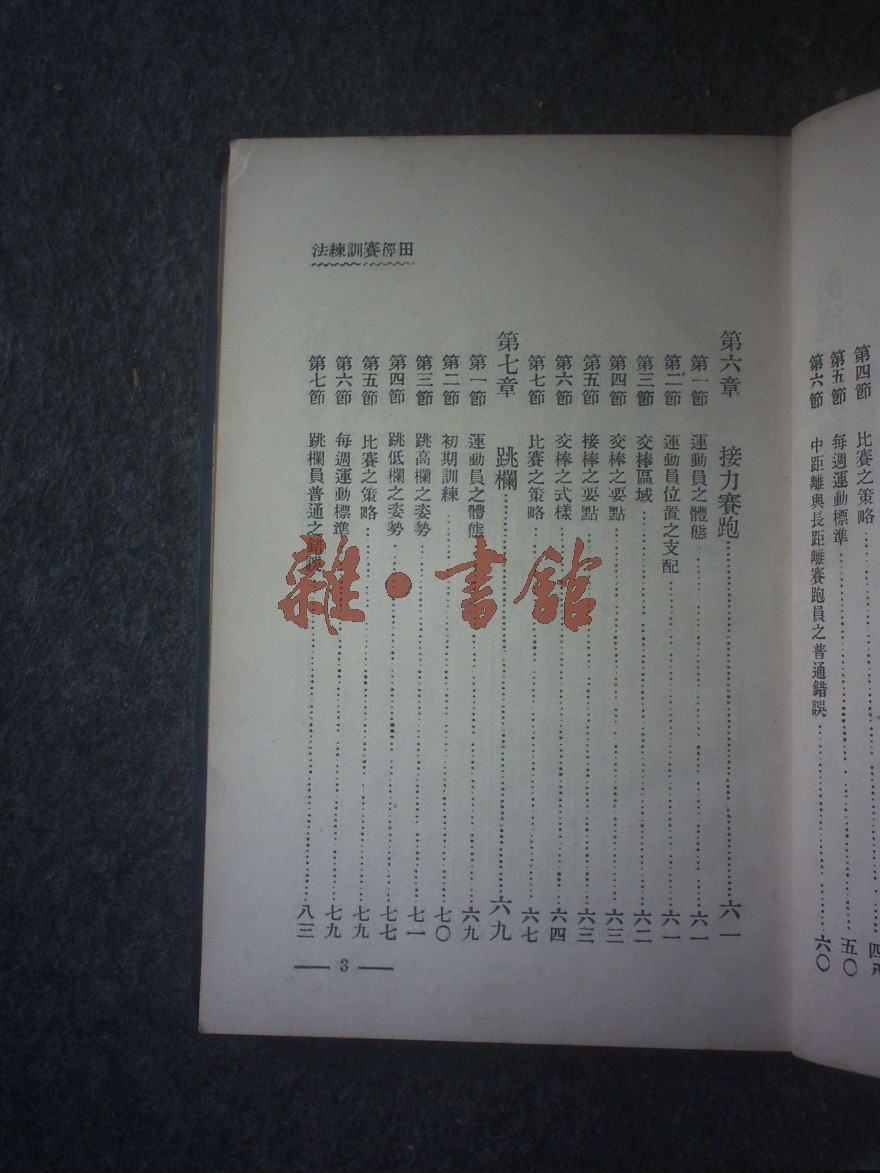 第四節 比賽之策略
第五節 每週運動標準 五〇
第六節 中距離與長距離賽跑員之普通錯誤 六〇
田徑賽訓練法
第六章 接力賽跑 六一
第一節 運動員之體態 六一
第二節 運動員位置之支配 六一
第三節 交棒區域 六二
第四節 交棒之要點 六三
第五節 接棒之要點 六三
第六節 交棒之式樣 六四
第七節 比賽之策略 六七
第七章 跳欄 六九
第一節 運動員之體態 六九
第二節 初期訓練 七〇
第三節 跳高欄之姿勢 七一
第四節 跳低欄之姿勢 七七
第五節 比賽之策略 七九
第六節 每週運動標準 七九
第七節 跳欄員普通之錯誤 八三
3
雜·書館